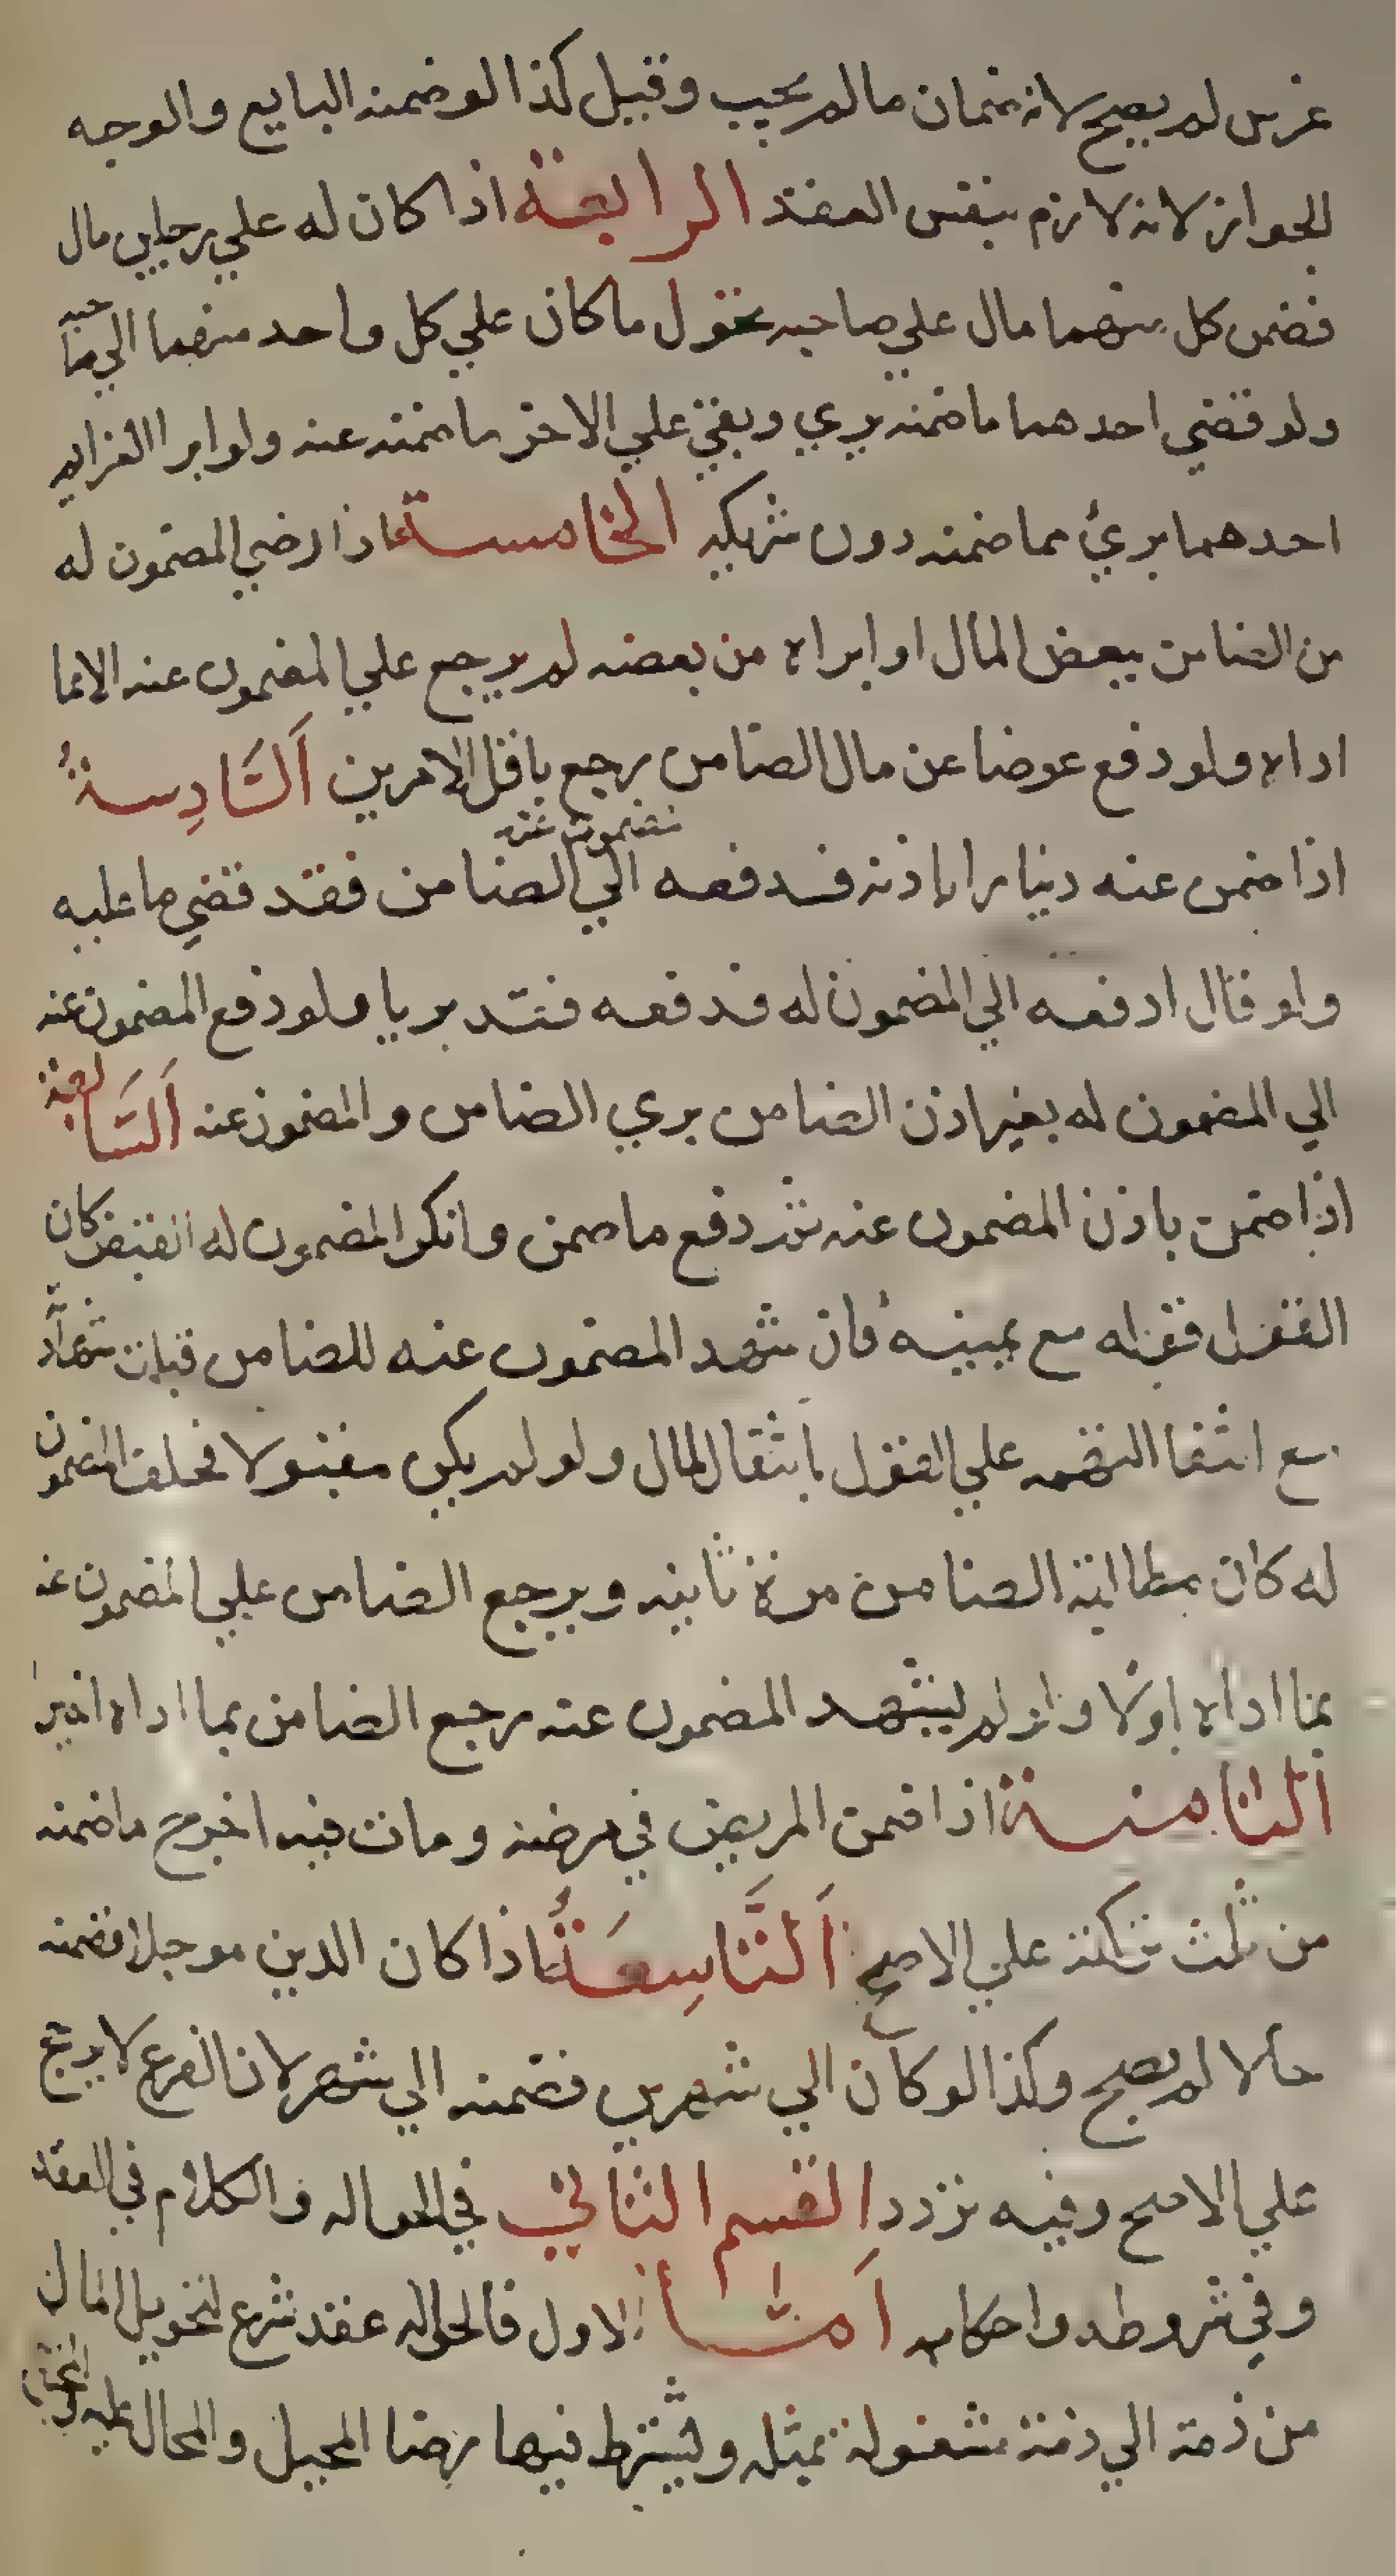 غرس لم يصح لانه ضمان ما لم يجب وقيل كذا لو ضمنه البايع والوجه
الجواز لانه لازم بنفس العقد الرابعة اذا كان له علي رجلين مال
فضمن كل منهما مال علي صاحبه تحول ما كان علي كل واحد منهما الي صاحبه
ولو قضي احدهما ما ضمنه بري وبقي علي الاخر ما ضمنه عنه ولو ابرا الغرايم
احدهما بريء مما ضمنه دون شريكه الخامسة اذا رضي المضمون له
من الضامن ببعض المال او ابراه من بعضه لم يرجع علي المضمون عنه الا بما
اداه ولو دفع عوضا عن مال الضامن رجع باقل الامرين اَلسَّادِسةُ
اذا ضمن عنه دينارا باذنه فدفعه مضمون عنه الي الضامن فقد قضي ما عليه
ولو قال ادفعه الي المضمون له فدفعه فقد بريا ولو دفع المضمون عنه
الي المضمون له بغير اذن الضامن بري الضامن والمضمون عنه اَلسَّابعة
اذا ضمن باذن المضمون عنه ثم دفع ما ضمن وانكر المضمون له القبض كان
القول قوله مع يمينه فان شهد المضمون عنه للضامن قبلت شهادته
مع انتفا التهمه علي القول بانتقال المال ولو لم يكن مقبولا فحلف المضمون
له كان مطالبة الضامن مرة ثانيه ويرجع الضامن علي المضمون عنه
بما اداه اولا وان لم يشهد المضمون عنه رجع الضامن بما اداه اخيرا
الثامنة اذا ضمن المريض في مرضه ومات فيه اخرج ما ضمنه
من ثلث تركته علي الاصح اَلتَّاسِعَةُ اذا كان الدين موجلا فضمنه
حالا لم يصح وكذا لو كان الي شهرين فضمنه الي شهر لان الفرع لا يرجح
علي الاصح وفيه تردد القسم الثاني في الحواله والكلام في العقد
وفي شروطه واحكامه اَمَّا الاول فالحواله عقد شرع لتحويل المال
من ذمة الي ذمة مشغولة بمثله ويشترط فيها رضا المحيل والمحال عليه والمحتال